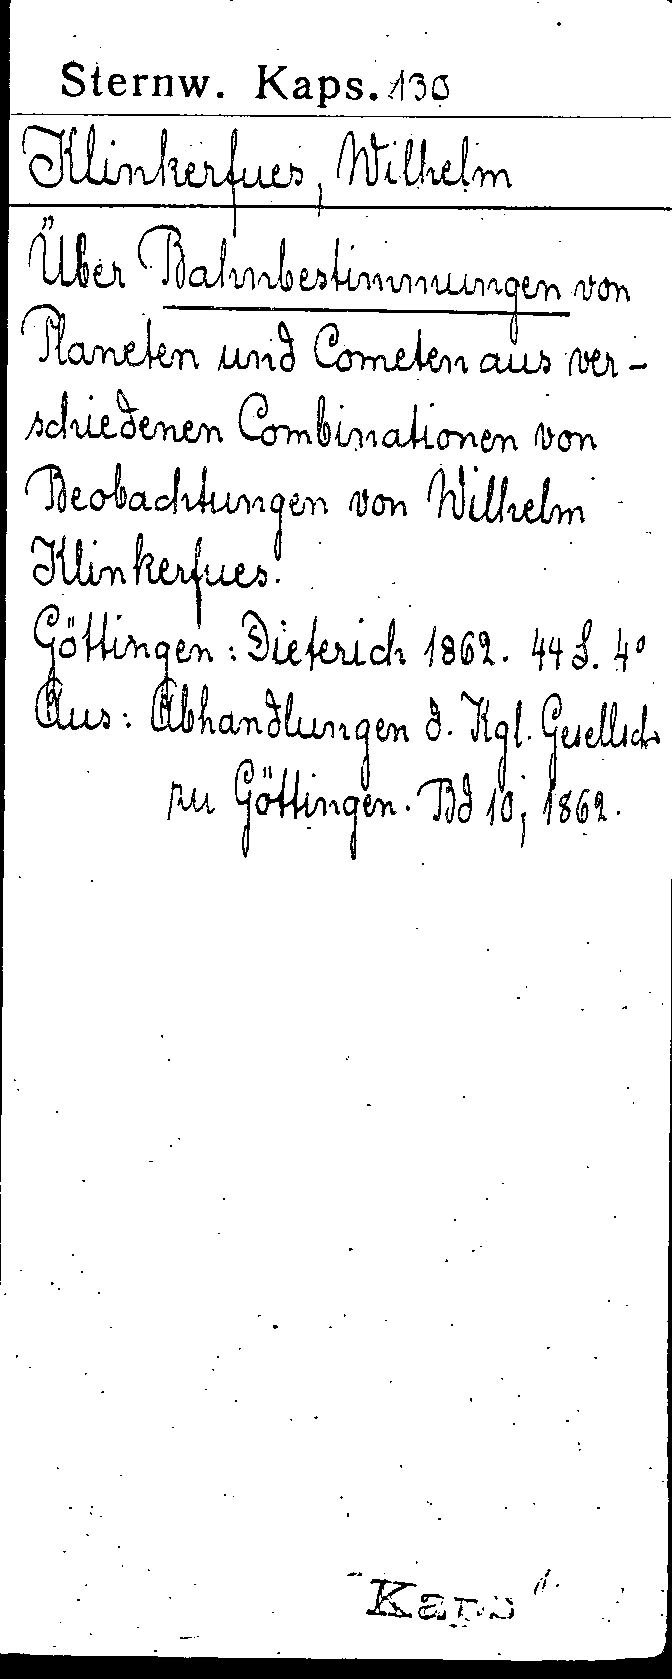 Sternw. Kaps. 130
Klinkerfues, Wilhelm
Über Bahnbestimmungen von
Planeten und Cometen aus ver-
schiedenen Combinationen von
Beobachtungen von Wilhelm
Klinkerfues.
Göttingen: Dieterich 1862. 44 S. 4°
Aus: Abhandlungen d. Kgl. Gesellsch.
zu Göttingen. Bd 10, 1862.
Kaps